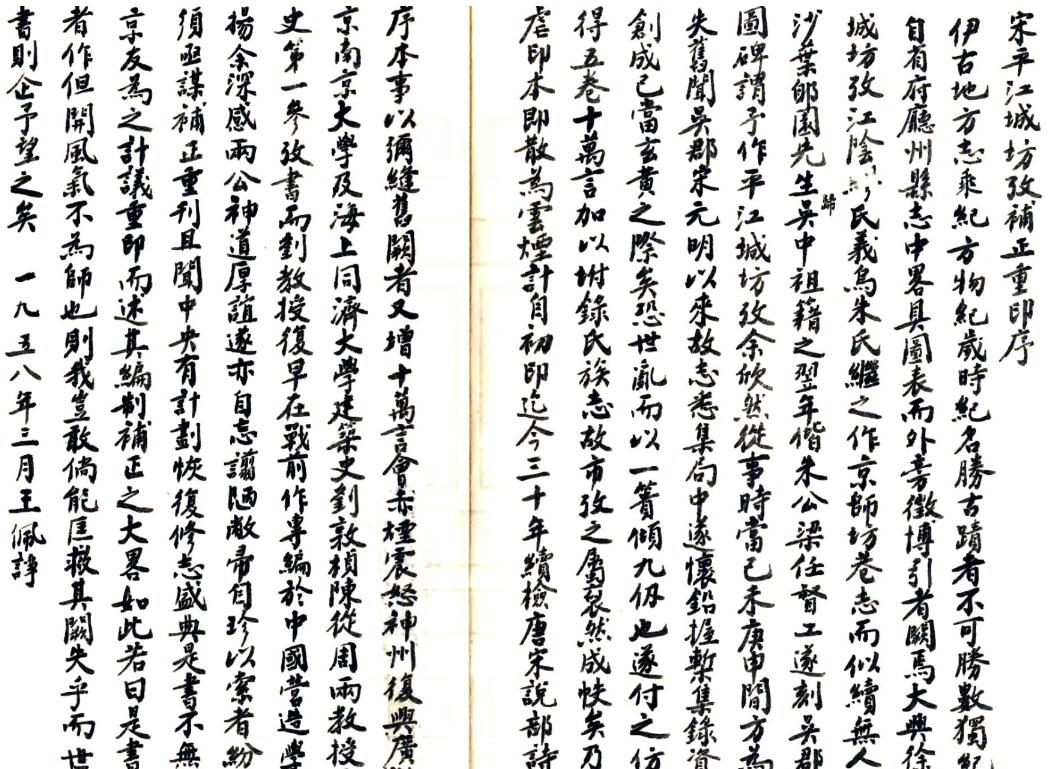 宋平江城坊攷補正重印序
伊古地方志乘紀方物紀歲時紀名勝古蹟者不可勝數獨紀
自有府廳州縣志中畧具圖表而外旁徵博引者闕焉大興徐
城坊攷江陰繆氏義烏朱氏繼之作京師坊巷志而似續無人
沙葉郋園先生歸吳中祖籍之翌年偕朱公梁任督工遂刻吳郡
圖碑謂予作平江城坊攷余欣然從事時當己未庚申間方為
失舊聞吳郡宋元明以來故志悉集局中遂懷鉛握槧集錄資
創成已當玄黃之際矣恐世亂而以一簣傾九仞也遂付之仿
得五卷十萬言加以坿錄氏族志故市攷之屬裒然成帙矣乃
虐印本即散為雲煙計自初印迄今三十年續檢唐宋說部詩
序本事以彌縫舊闕者又增十萬言會赤煙震怒神州復興廣
京南京大學及海上同濟大學建築史劉敦楨陳從周兩教授
史第一參攷書而劉教授復早在戰前作專編於中國營造學
揚余深感兩公神道厚誼遂亦自忘譾陋敝帚自珍以索者紛
須亟謀補正重刊且聞中央有計劃恢復修志盛典是書不無
京友為之計議重印而述其編制補正之大畧如此若曰是書
者作但開風氣不為師也則我豈敢倘能匡救其闕失乎而世
書則企予望之矣 一九五八年三月王佩諍